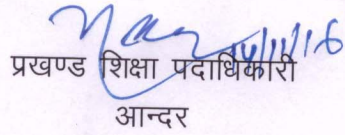 14/11/16
प्रखण्ड शिक्षा पदाधिकारी
आन्दर